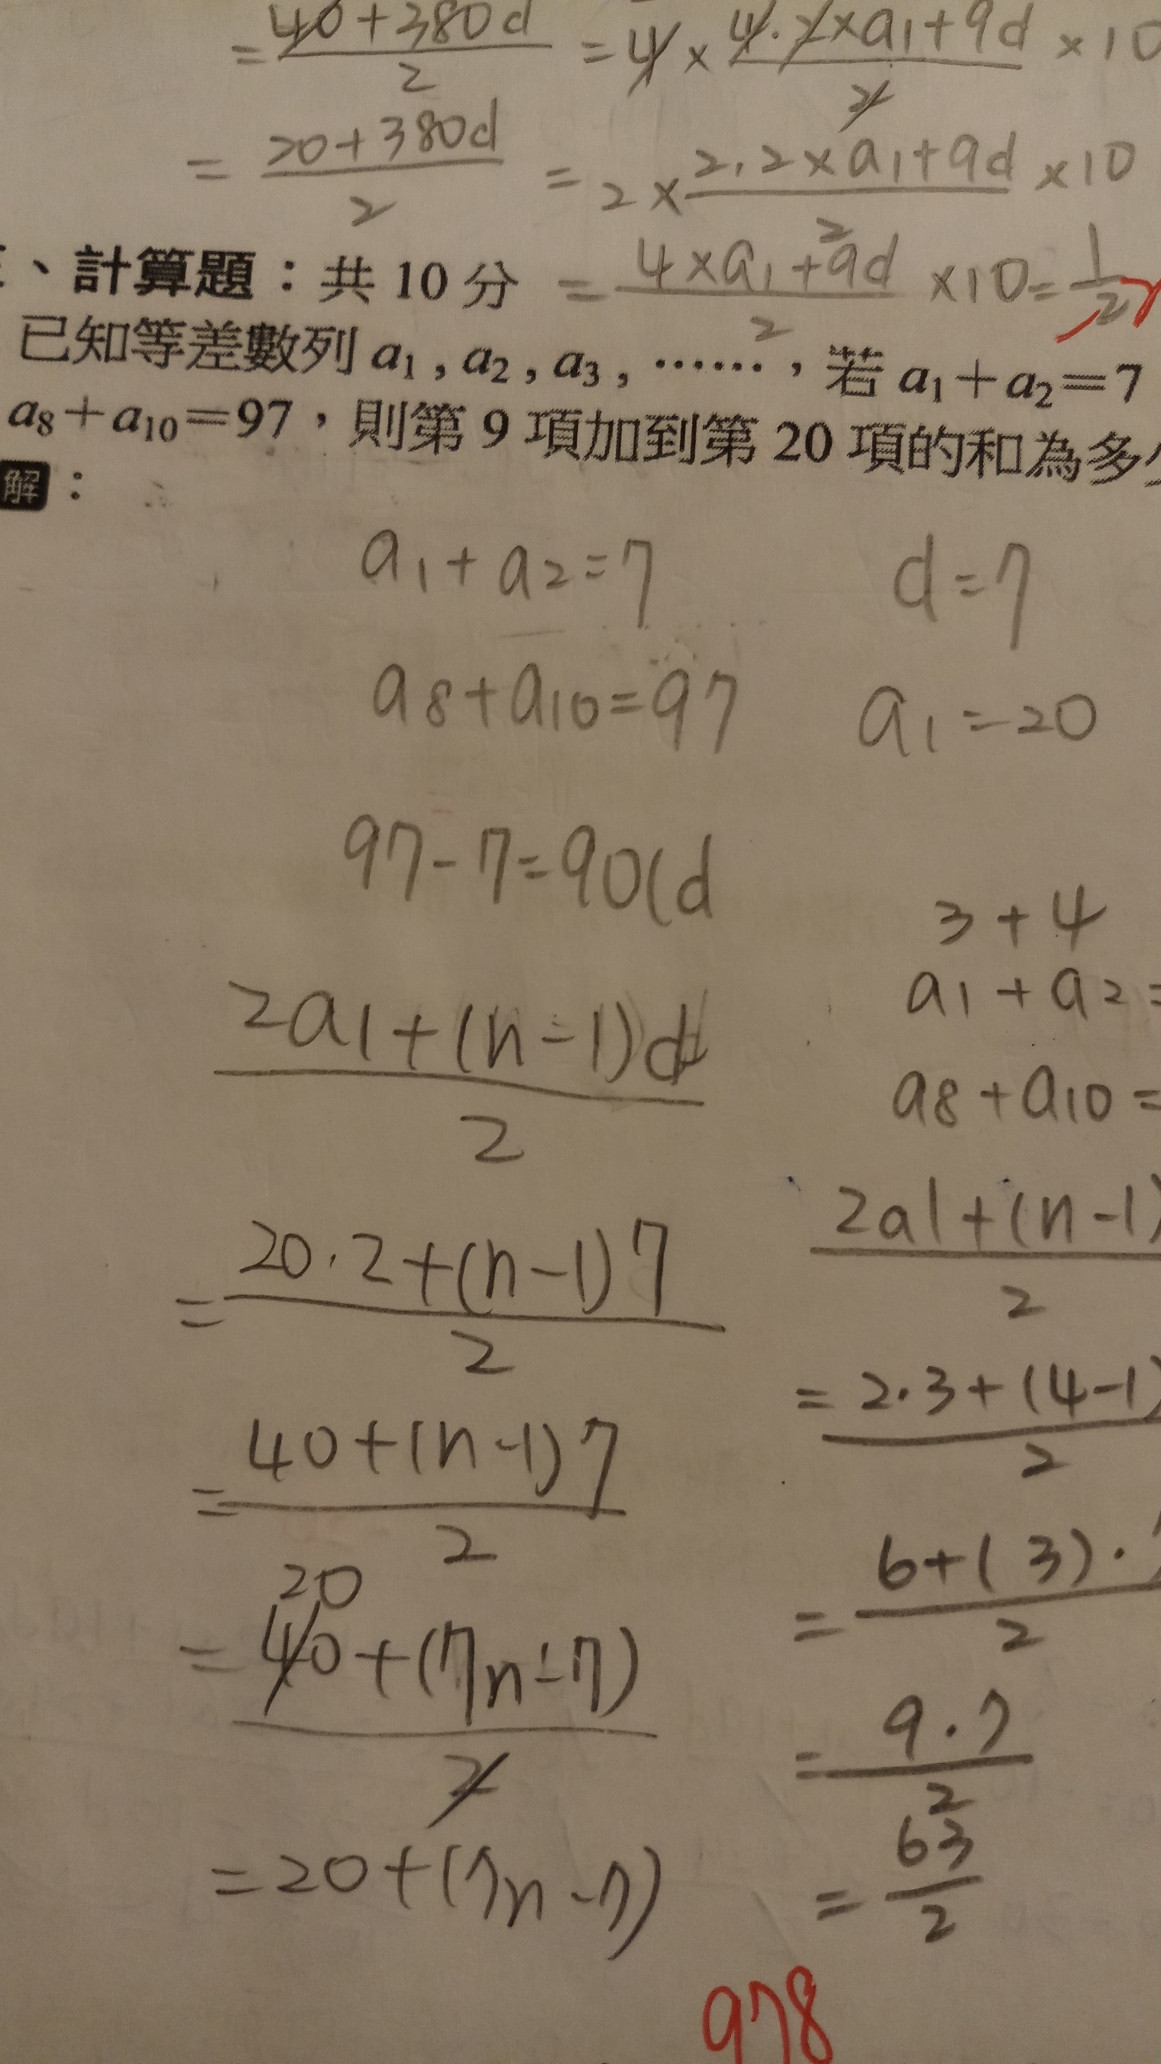 = 40+380d / 2 = 4 × 4·2×a₁+9d / 2 × 10
= 20+380d / 2 = 2 × 2.2×a₁+9d / 2 × 10
、計算題：共 10 分 = 4×a₁+9d / 2 ×10 = 1/2
已知等差數列 a₁ , a₂ , a₃ , ⋯⋯ ，若 a₁＋a₂＝7
a₈＋a₁₀＝97，則第 9 項加到第 20 項的和為多
解：
a₁+a₂=7
d=7
a₈+a₁₀=97
a₁=20
97-7=90(d
3+4
a₁+a₂=
a₈+a₁₀=
2a₁+(n-1)d / 2
= 20·2+(n-1)7 / 2
= 40+(n-1)7 / 2
20
= 40+(7n-7) / 2
= 20+(7n-7)
2a1+(n-1) / 2
= 2·3+(4-1) / 2
= 6+(3)· / 2
= 9·7 / 2
= 63 / 2
978